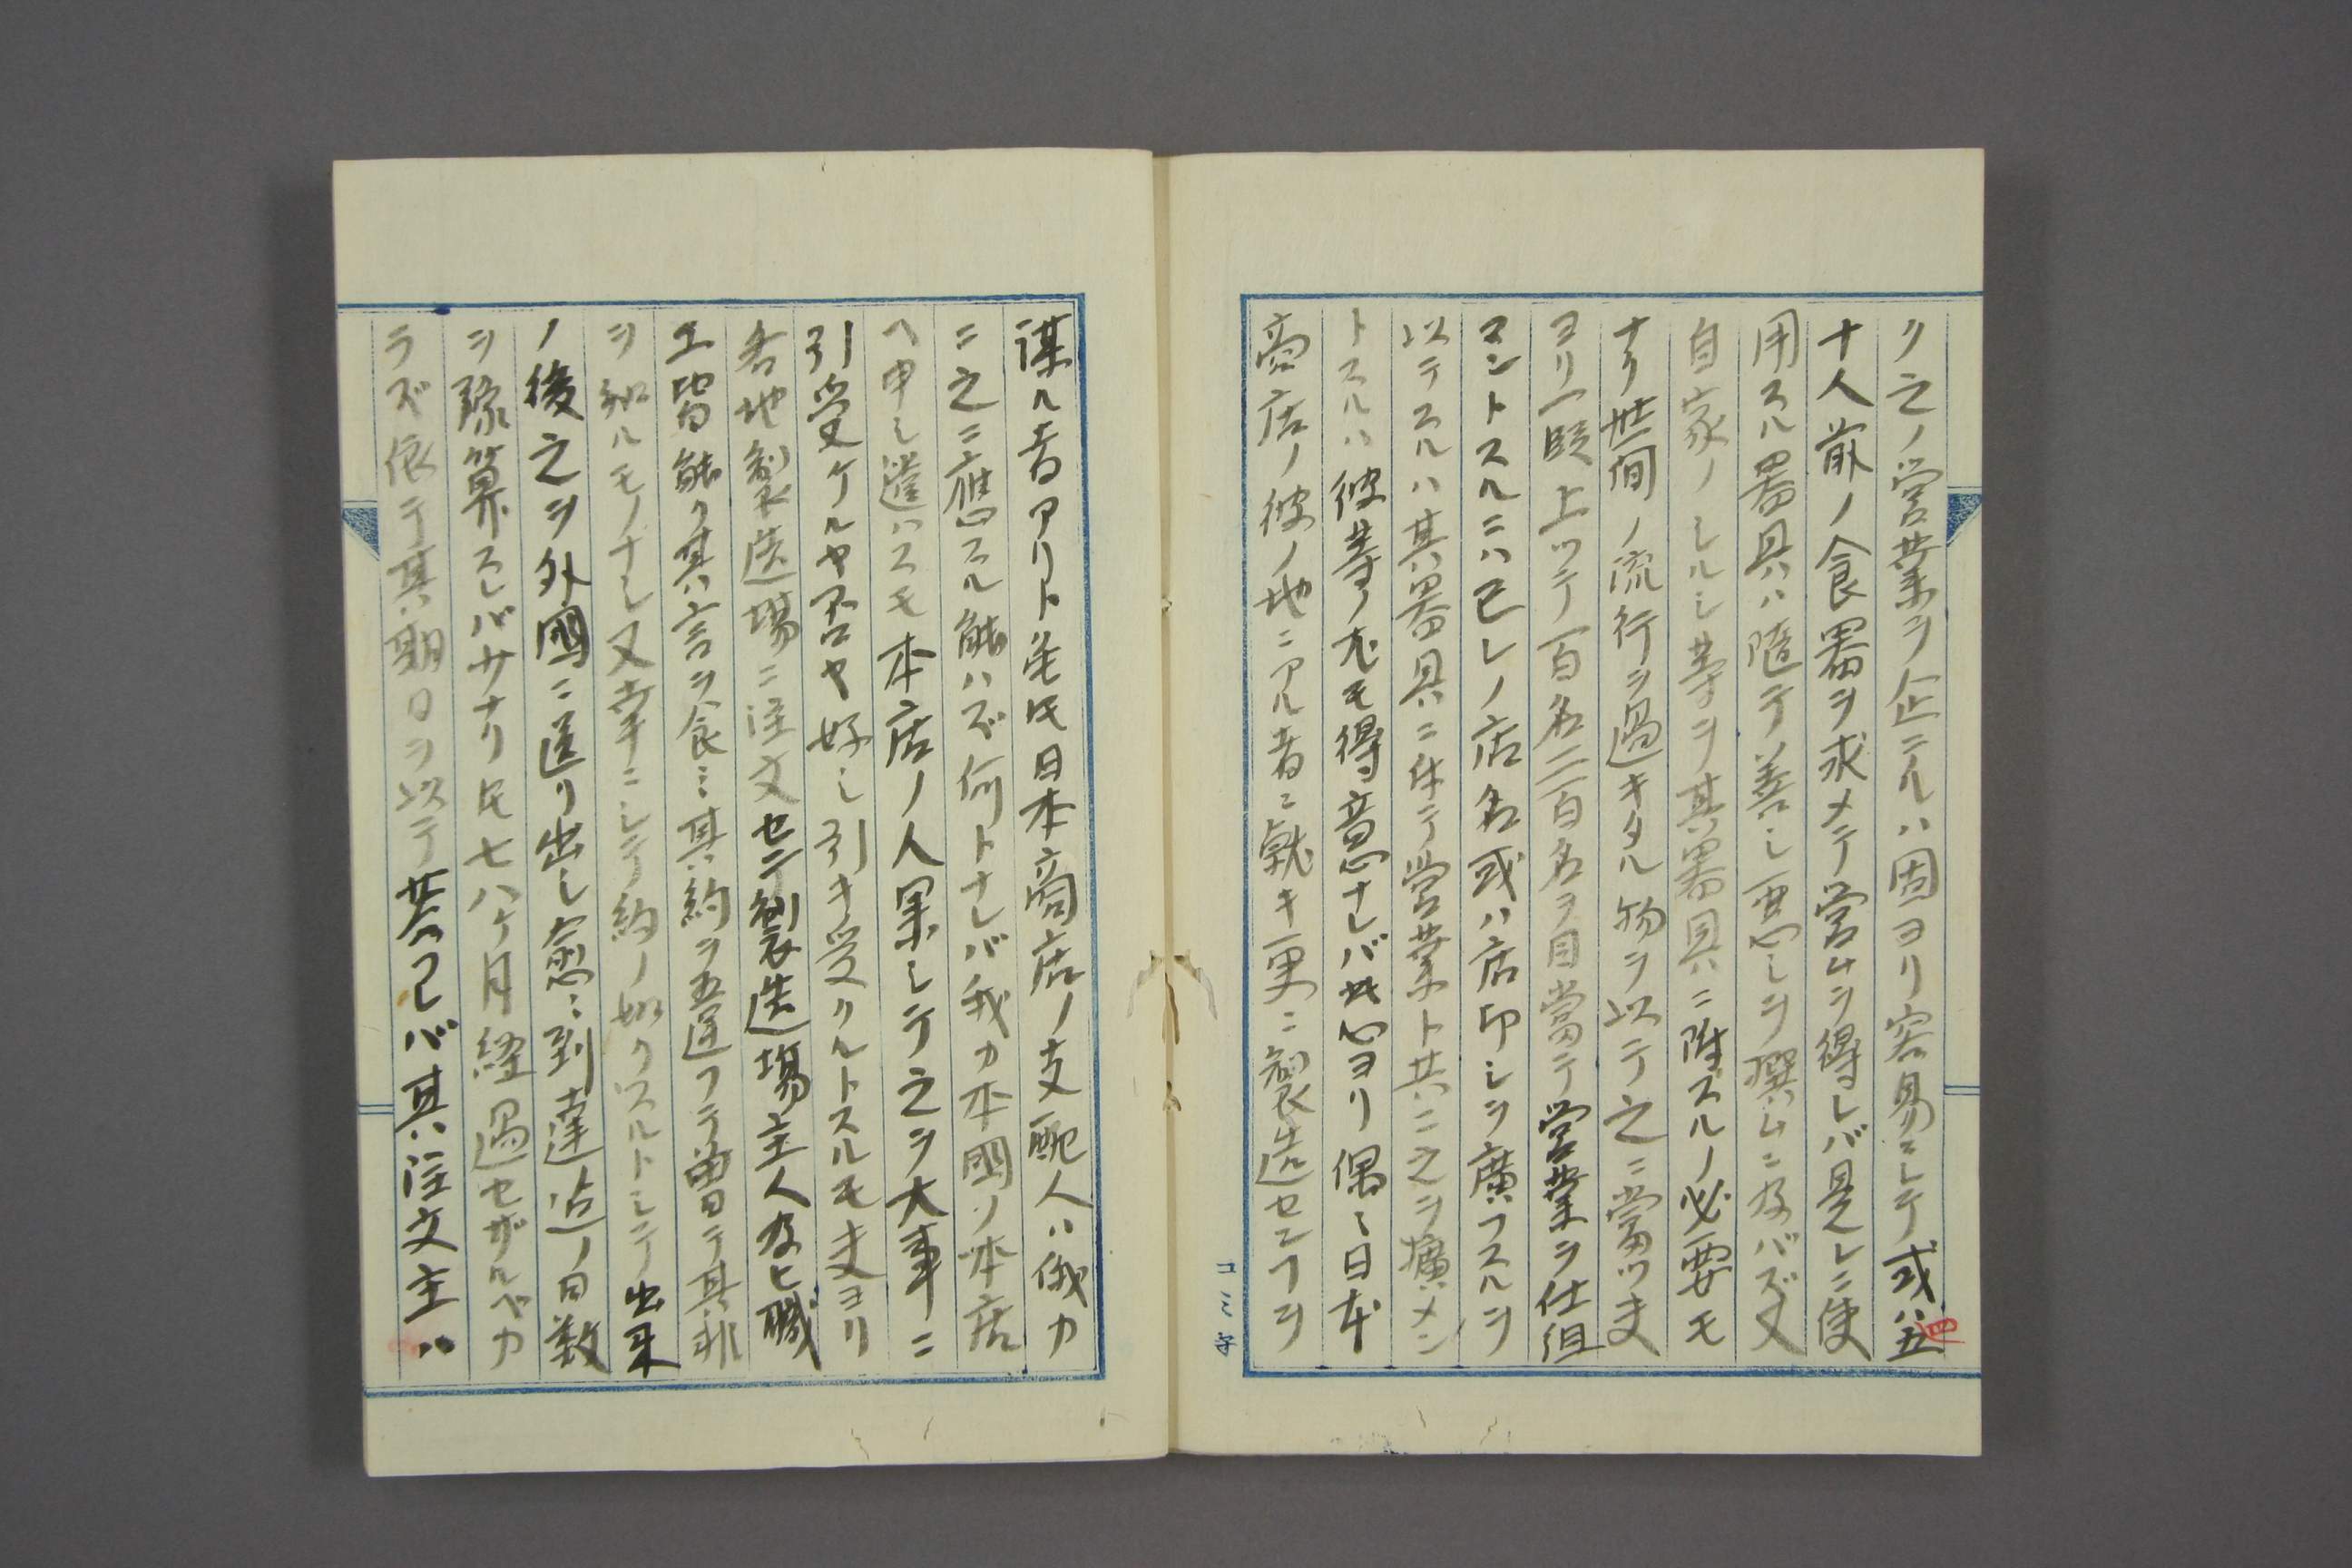 ク之ノ営業ヲ企ツルハ固ヨリ容易ニシテ或ハ五
四
十人前ノ食器ヲ求メテ営ムヲ得レバ是レニ使
用スル器具ハ随テ善シ悪シヲ撰ムニ及バズ又
自家ノシルシ等ヲ其器具ニ附スルノ必要モ
ナク世間ノ流行ヲ過キタル物ヲ以テ之ニ當ツ夫
ヨリ一段上ツテ百名二百名ヲ目當テ営業ヲ仕組
マントスルニハ己レノ店名或ハ店印シヲ廣フスルヲ
以テスルハ其器具ニ体テ営業ト共ニ之ヲ擴メン
トスルハ彼等ノ尤モ得意ナレバ此心ヨリ偶々日本
商店ノ彼ノ地ニアル者ニ就キ更ニ製造センフヲ
コミ字
謀ル者アリト雖氏日本商店ノ支配人ハ俄カ
ニ之ニ應スル能ハズ何トナレバ我カ本國ノ本店
ヘ申シ遣ハスモ本店ノ人果シテ之ヲ大事ニ
引受ケルヤ否ヤ好シ引キ受クルトスルモ夫ヨリ
各地製造場ニ注文セテ製造場主人及ヒ職
工皆能ク其言ヲ食ミ其約ヲ違フテ曽テ其非
ヲ知ルモノナシ又幸ニシテ約ノ如クスルトシテ出来
ノ後之ヲ外國ニ送リ出シ愈々到達迠ノ日数
ヲ豫算スレバサナク氏七八ケ月経過セザルベカ
ラズ依テ其期日ヲ以テ答フレバ其注文主ハ